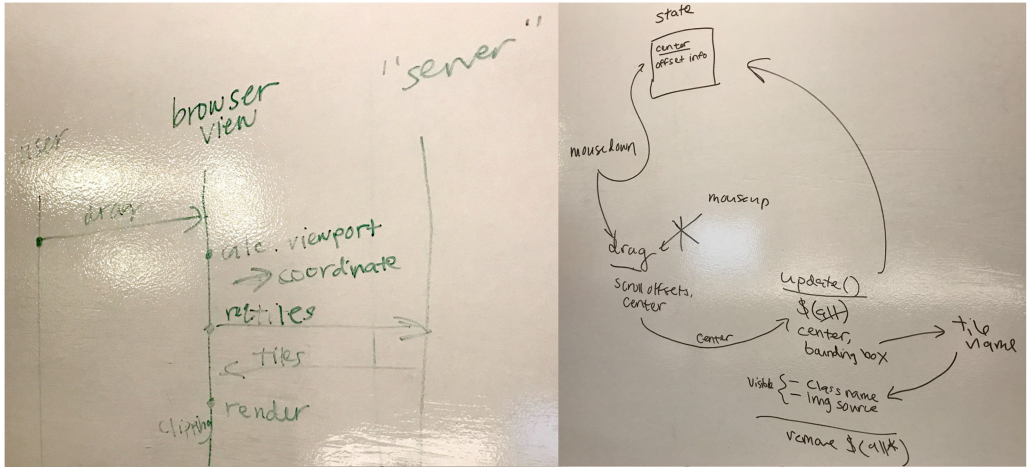 user
browser
view
"server"
drag
calc. viewport
→ coordinate
tiles
tiles
render
clipping
state
center
offset info
mousedown
mouseup
drag
scroll offsets,
center
center
update()
$(all)
center,
bounding box
tile
name
visible { - class name
- img source
remove $(all*)